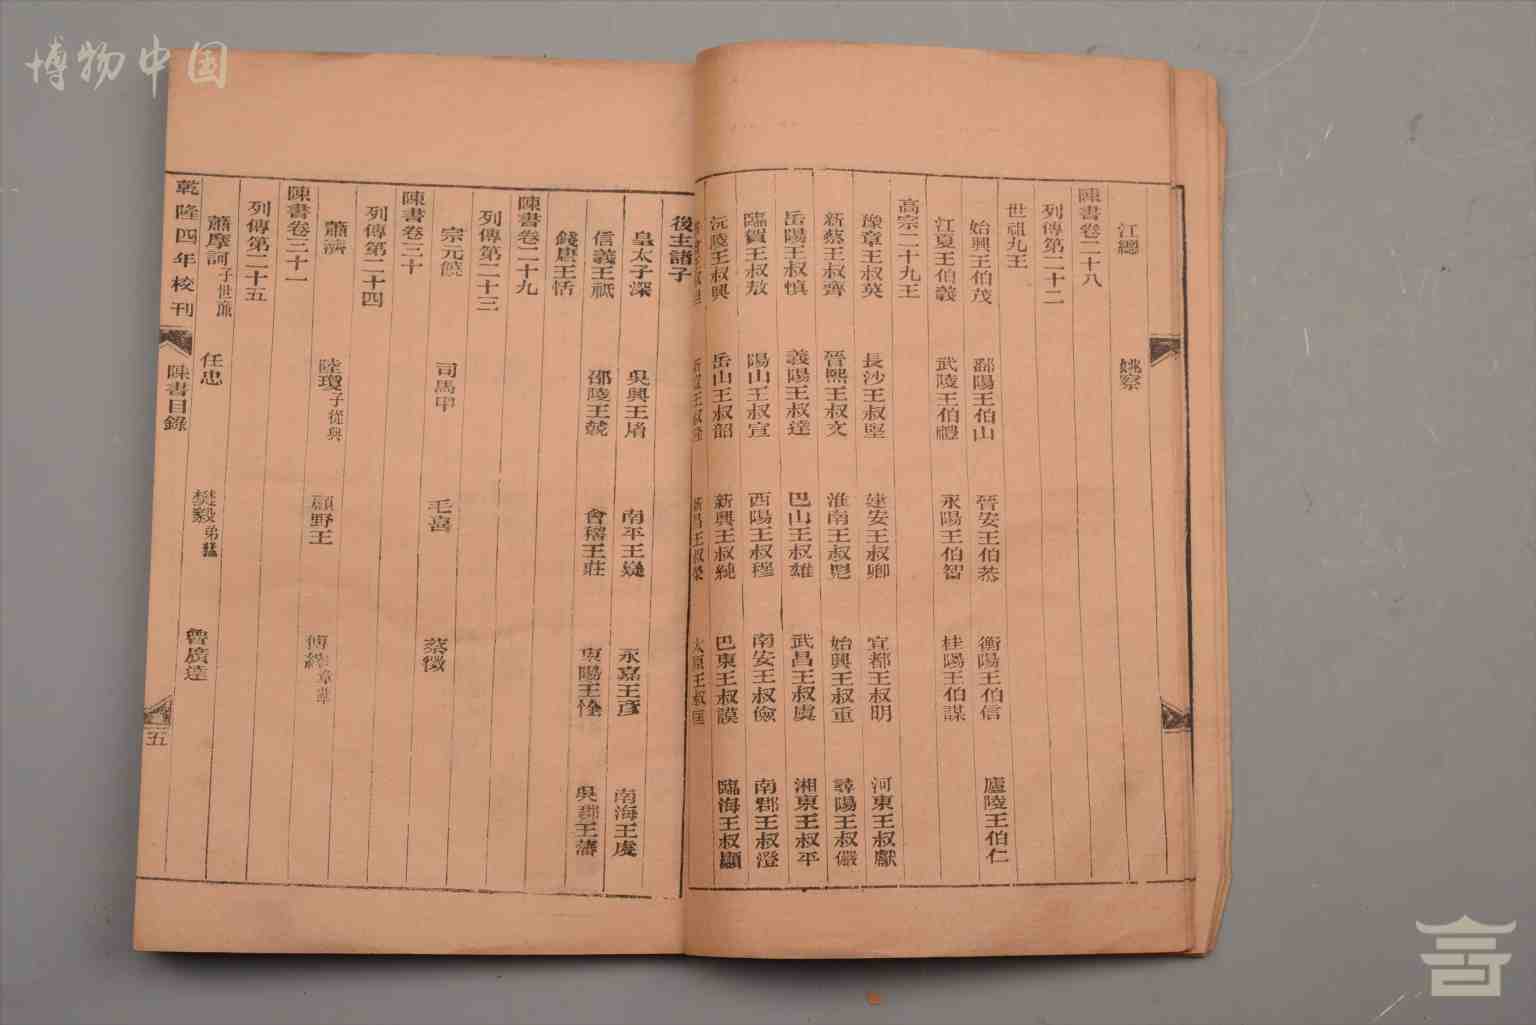 博物中国
江總　姚察
陳書卷二十八
列傳第二十二
世祖九王
始興王伯茂　鄱陽王伯山　晉安王伯恭　衡陽王伯信　廬陵王伯仁
江夏王伯義　武陵王伯禮　永陽王伯智　桂陽王伯謀
高宗二十九王
豫章王叔英　長沙王叔堅　建安王叔卿　宜都王叔明　河東王叔獻
新蔡王叔齊　晉熙王叔文　淮南王叔彪　始興王叔重　尋陽王叔儼
岳陽王叔慎　義陽王叔達　巴山王叔雄　武昌王叔虞　湘東王叔平
臨賀王叔敖　陽山王叔宣　西陽王叔穆　南安王叔儉　南郡王叔澄
沅陵王叔興　岳山王叔韶　新興王叔純　巴東王叔謨　臨海王叔顯
新昌王叔榮　太原王叔匡
後主諸子
皇太子深　吳興王胤　南平王嶷　永嘉王彥　南海王虔
信義王祗　邵陵王兢　會稽王莊　東陽王恮　吳郡王蕃
錢唐王恬
陳書卷二十九
列傳第二十三
宗元饒　司馬申　毛喜　蔡徵
陳書卷三十
列傳第二十四
蕭濟　陸瓊子從典　顧野王　傅縡章華
陳書卷三十一
列傳第二十五
蕭摩訶子世廉　任忠　樊毅弟猛　魯廣達
乾隆四年校刊　陳書目錄　五